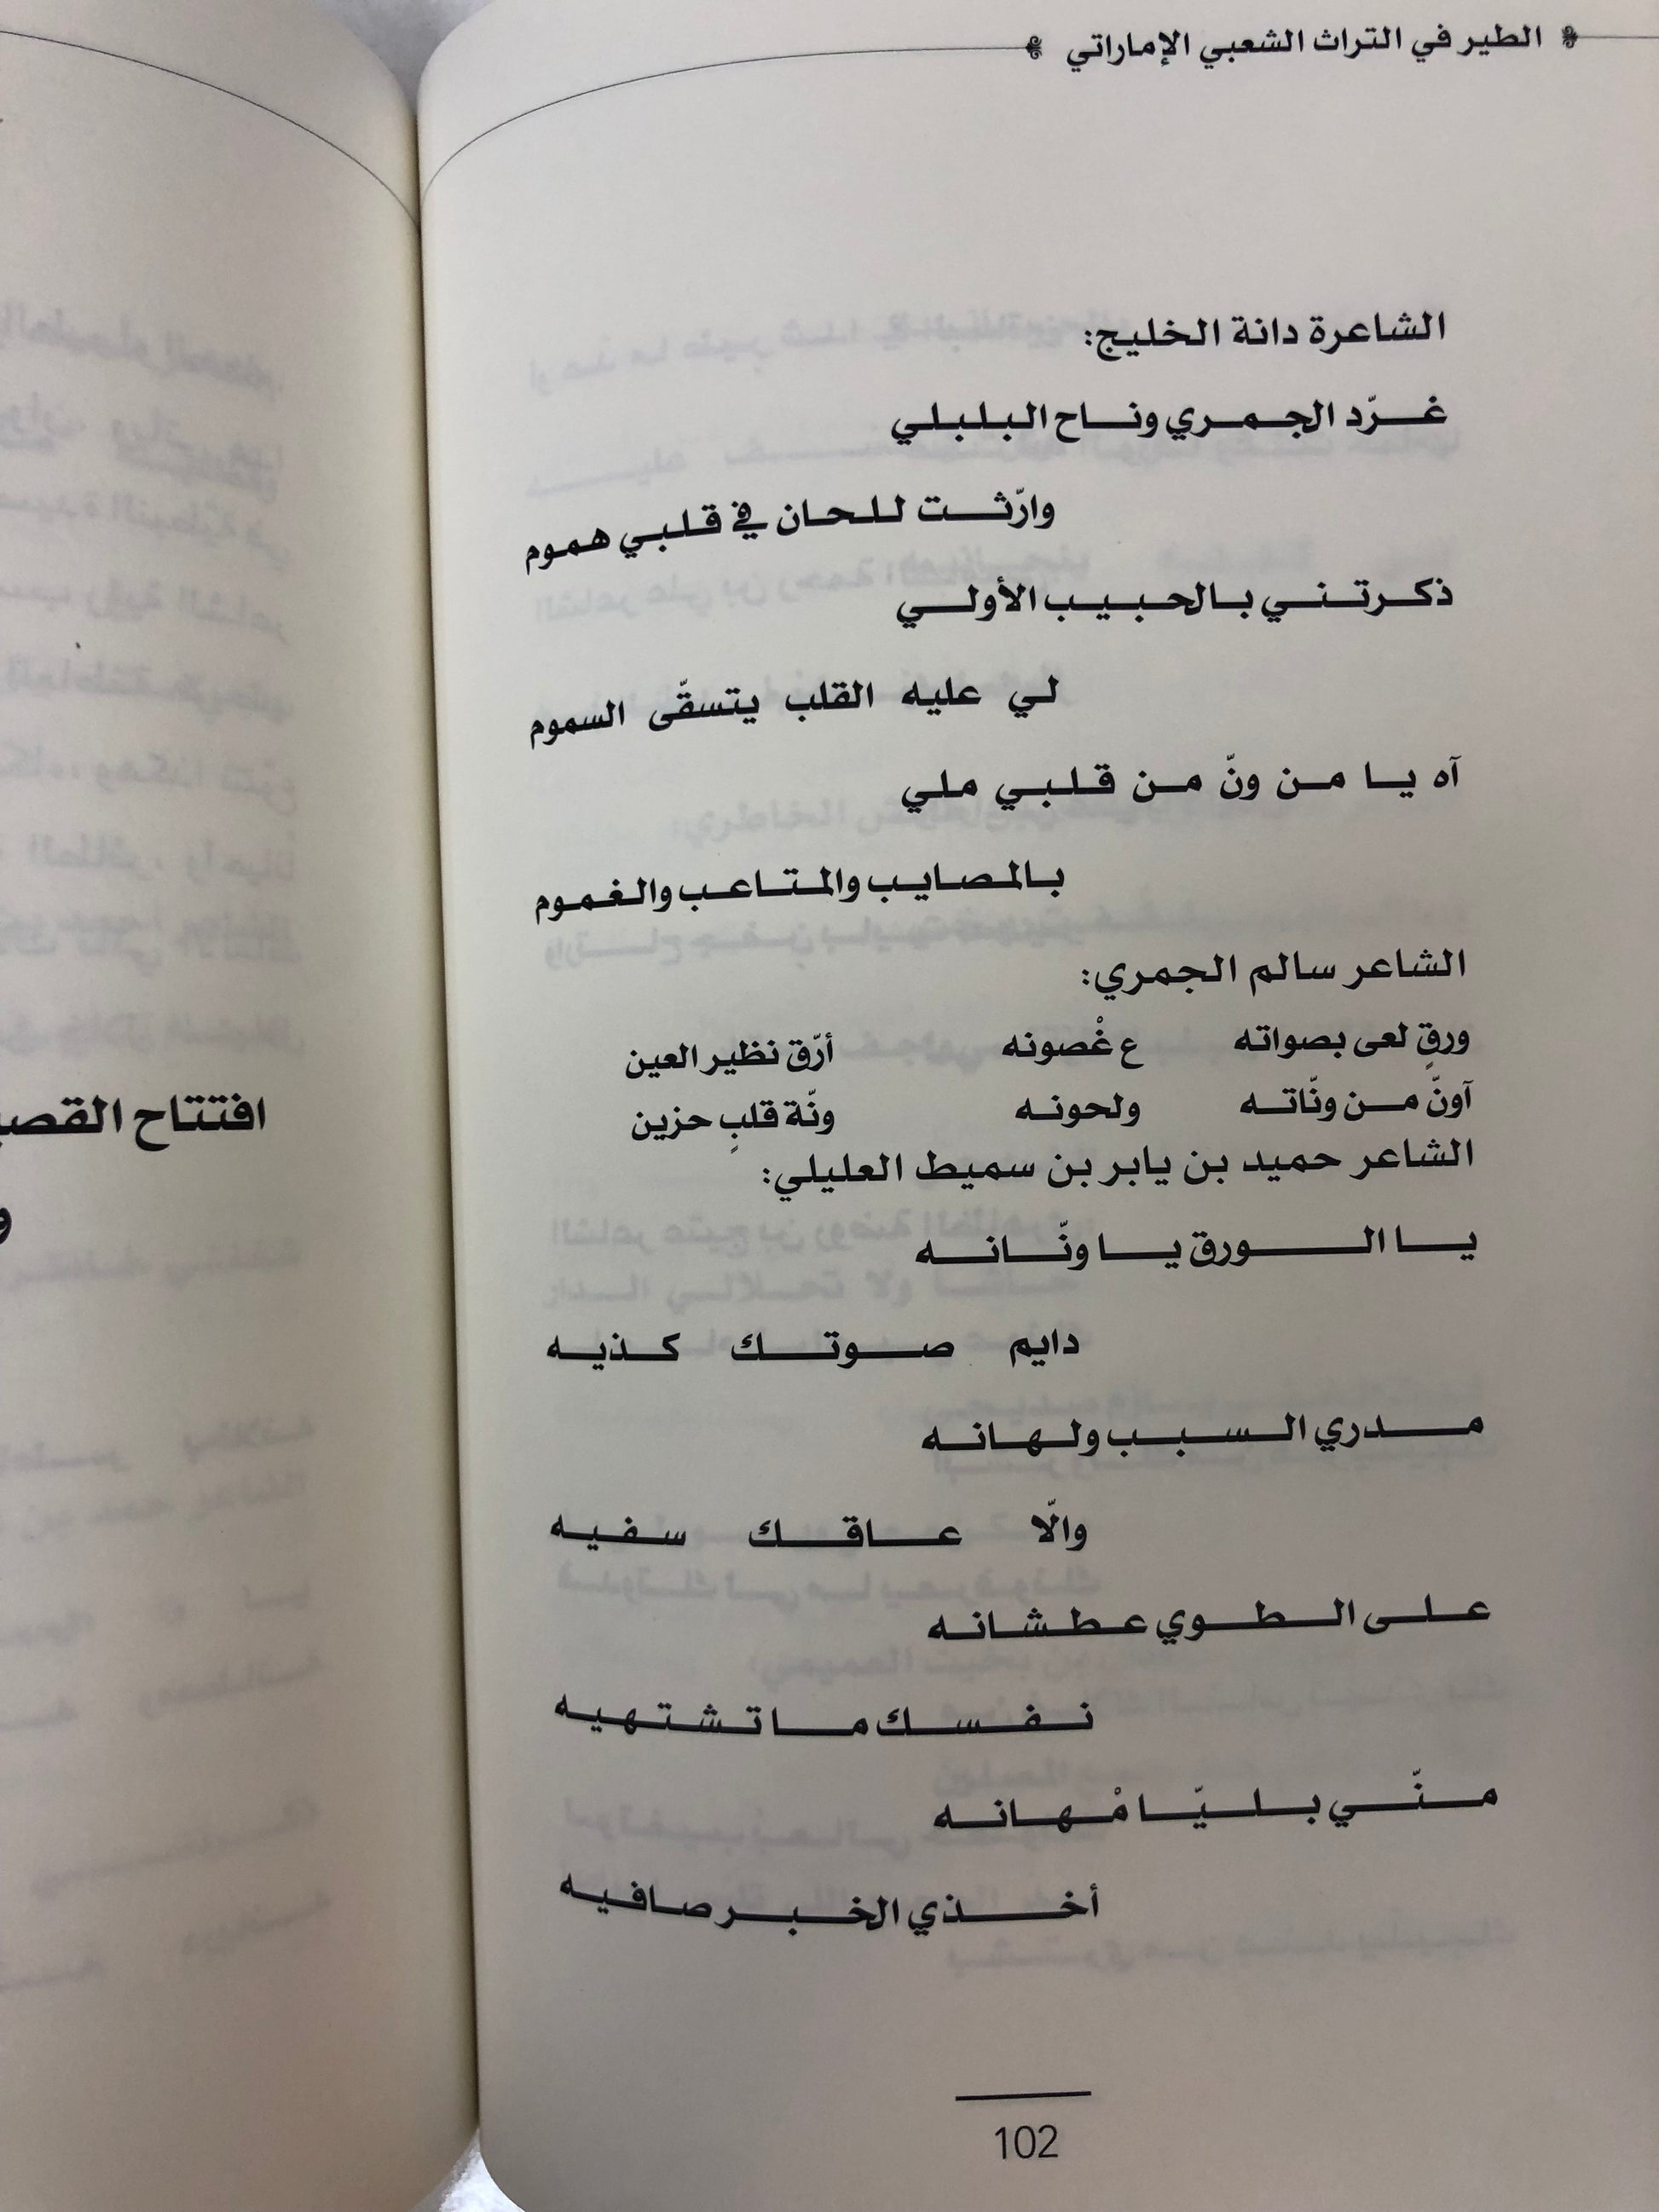 الطير في التراث الشعبي الإماراتي
الشاعرة دانة الخليج:
غرّد الجمري وناح البلبلي
وارّثت للحان في قلبي هموم
ذكرتني بالحبيب الأولي
لي عليه القلب يتسقّى السموم
آه يا من ونّ من قلبي ملي
بالمصايب والمتاعب والغموم
الشاعر سالم الجمري:
ورقٍ لعى بصواته ع غْصونه أرّق نظير العين
آونّ من ونّاته ولحونه ونّة قلبٍ حزين
الشاعر حميد بن يابر بن سميط العليلي:
يا الورق يا ونّانه
دايم صوتك كذيه
مدري السبب ولهانه
والّا عاقك سفيه
على الطوي عطشانه
نفسك ما تشتهيه
منّي بليّا مْهانه
أخذي الخبر صافيه
102
افتتاح